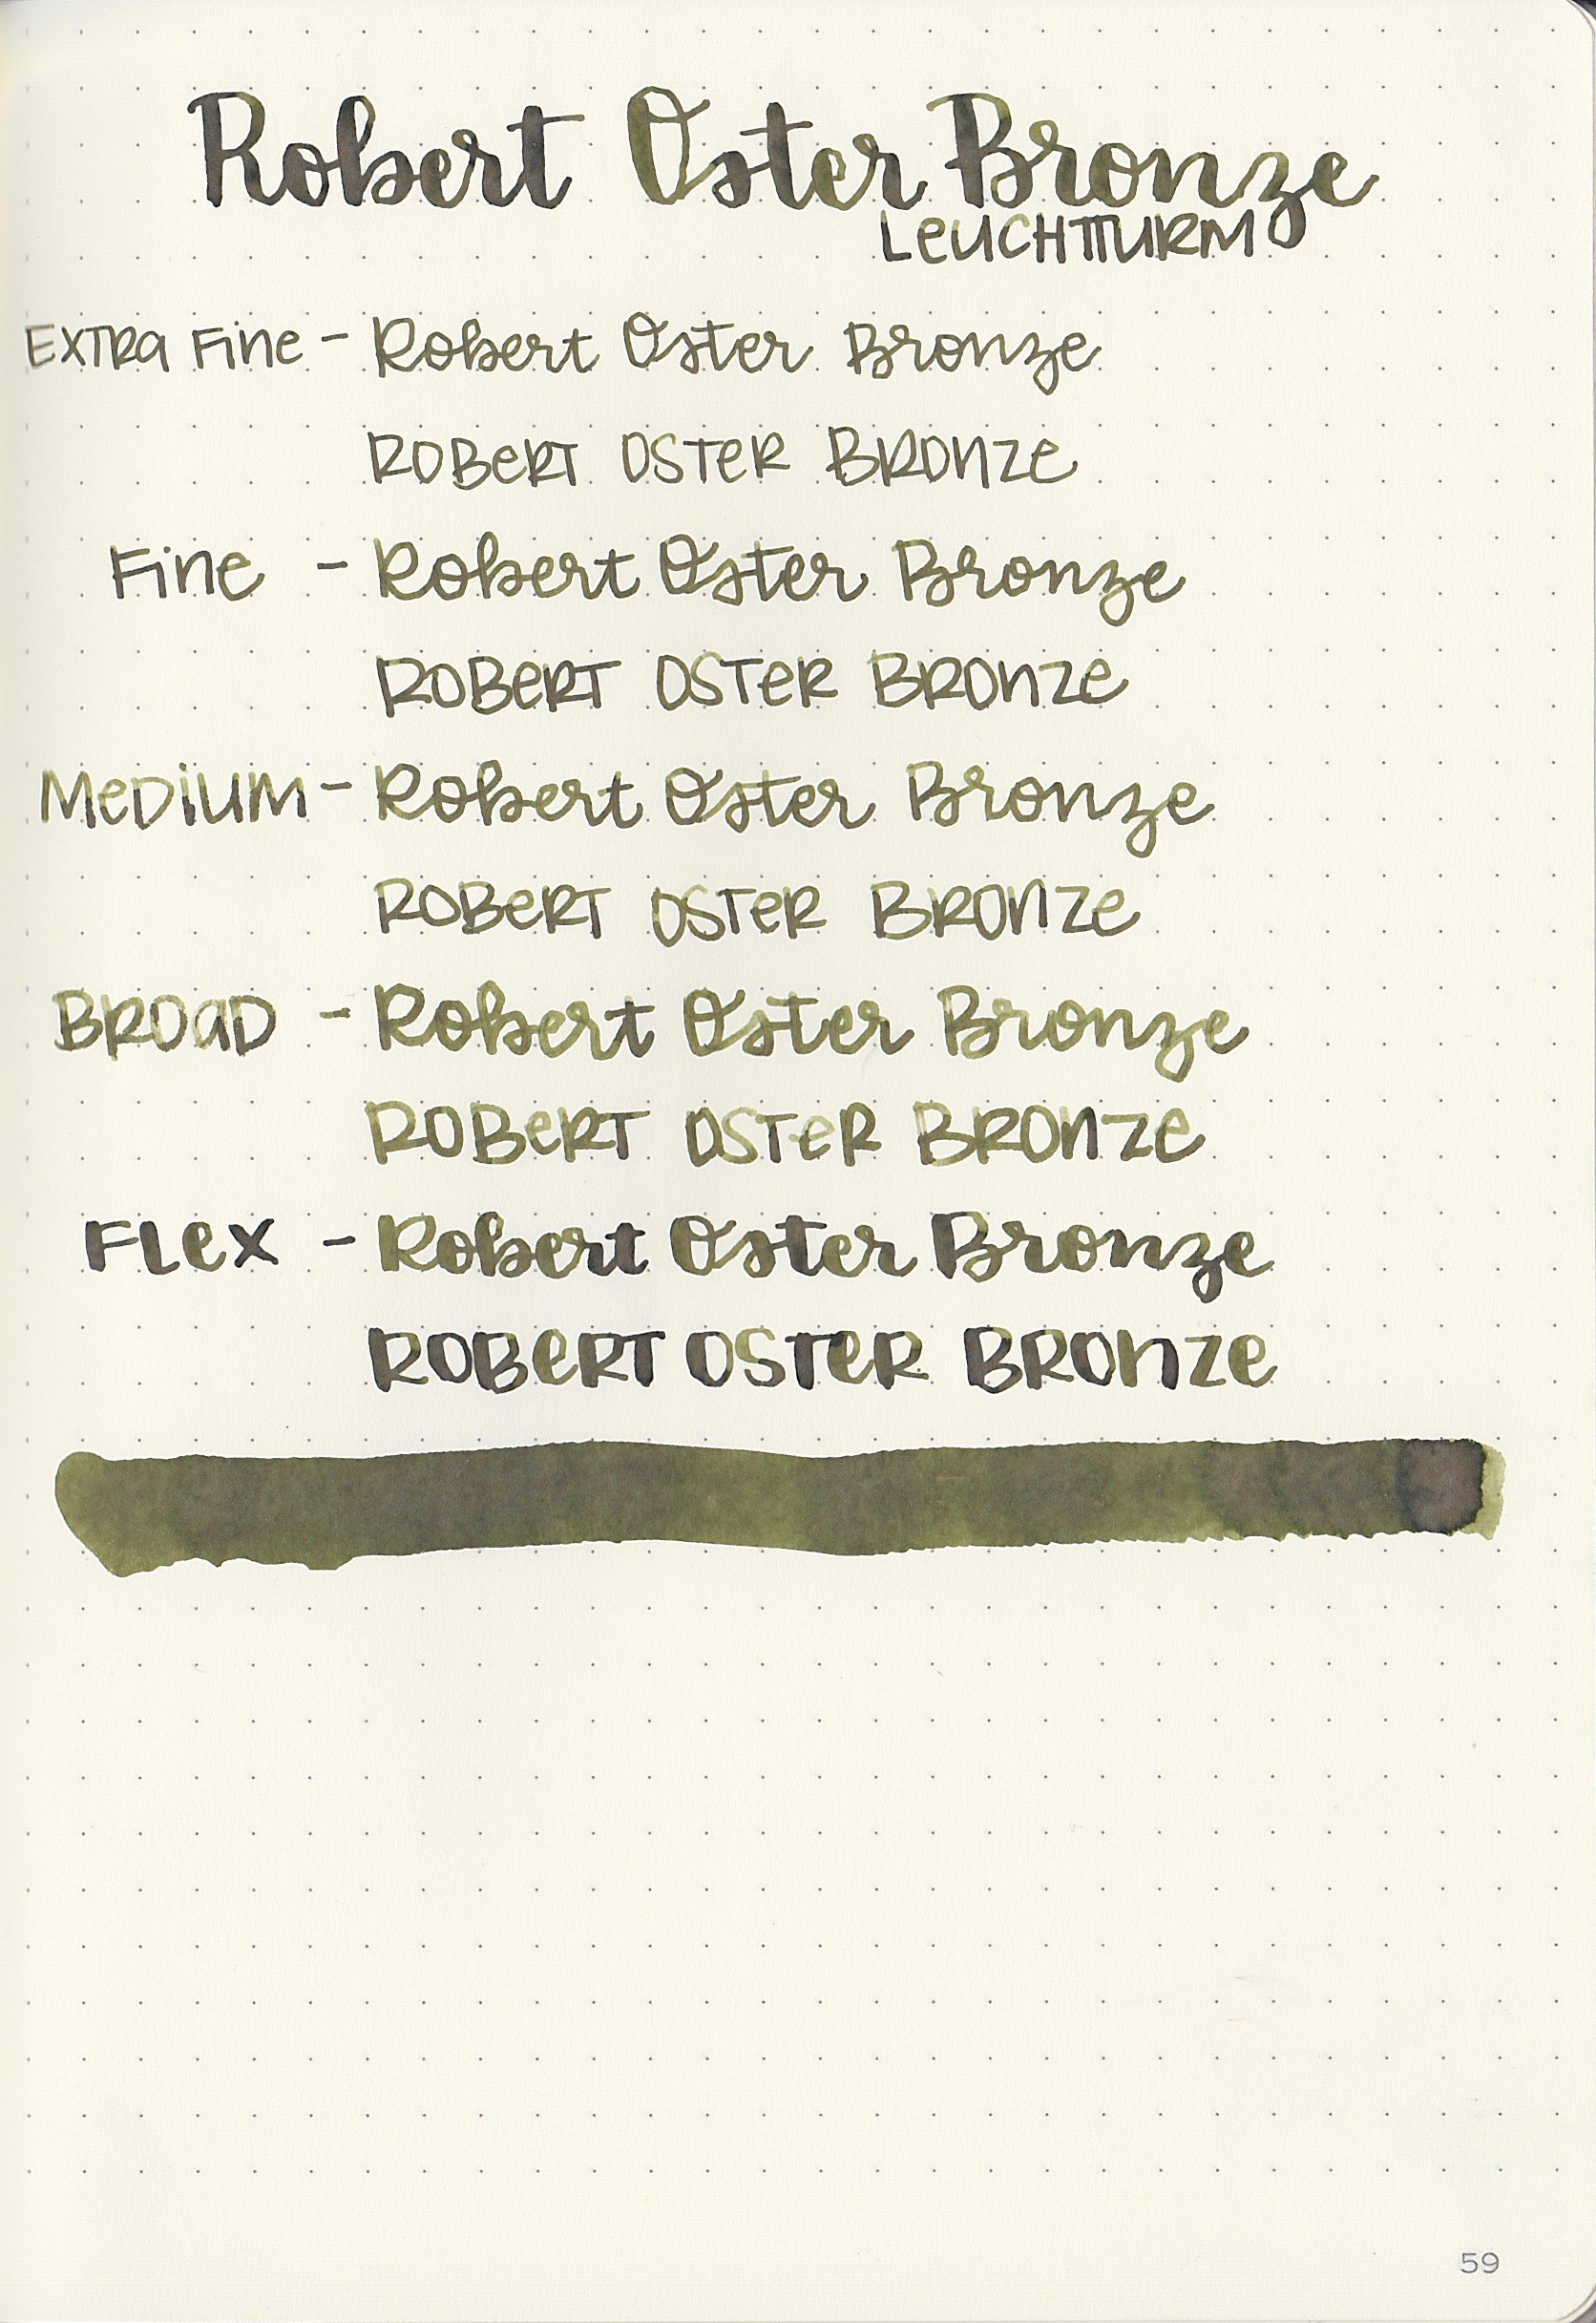 Robert Oster Bronze
LEUCHTTURM
EXTRa Fine - Robert Oster Bronze
ROBeRT OSTeR BROnZe
Fine - Robert Oster Bronze
ROBeRT OSTeR BROnZe
MeDiUM - Robert Oster Bronze
ROBeRT OSTeR BRONZe
BROaD - Robert Oster Bronze
ROBeRT OSTeR BRONZe
FLex - Robert Oster Bronze
ROBeRT OSTeR BROnZe
59